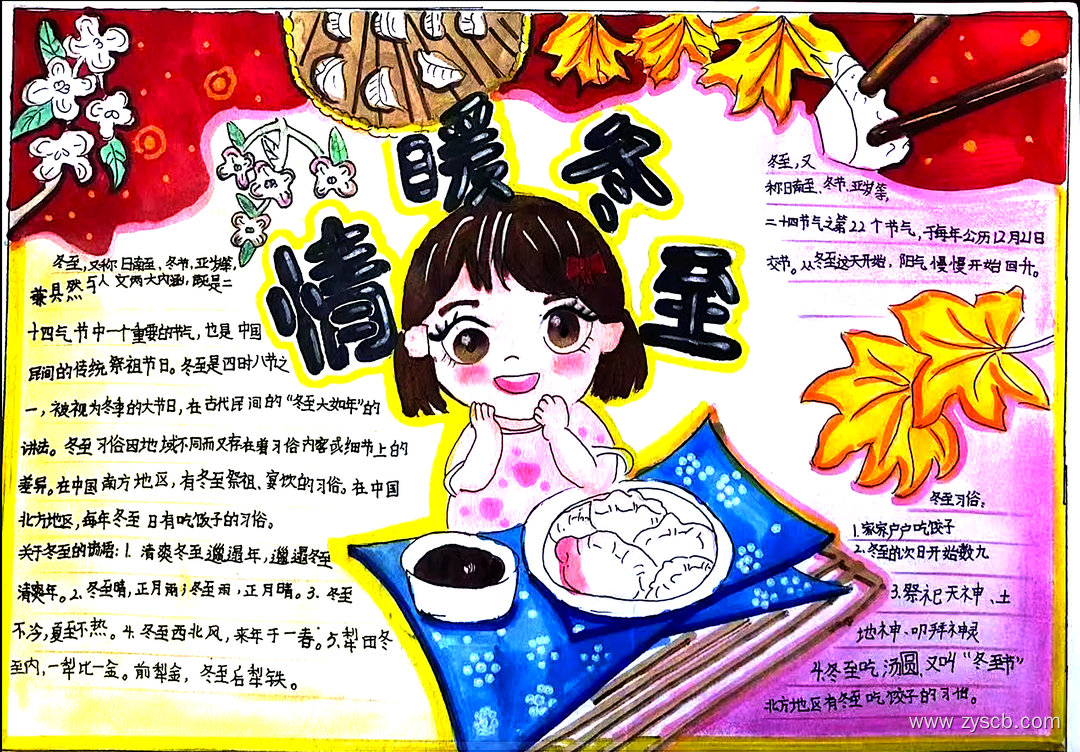 情暖冬至
冬至,又称日南至、冬节,亚岁等,
兼具自然与人文两大内涵,既是二
十四气节中一个重要的节气,也是中国
民间的传统祭祖节日。冬至是四时八节之
一,被视为冬季的大节日,在古代民间的“冬至大如年”的
讲法。冬至习俗因地域不同而又存在着习俗内容或细节上的
差异。在中国南方地区,有冬至祭祖、宴饮的习俗。在中国
北方地区,每年冬至日有吃饺子的习俗。
关于冬至的谚语:1.清爽冬至邋遢年,邋遢冬至
清爽年。2、冬至晴,正月雨;冬至雨,正月晴。3.冬至
不冷,夏至不热。4.冬至西北风,来年干一春。5、犁田冬
至内,一犁比一金。前犁金,冬至后犁铁。
冬至,又
称日南至、冬节、亚岁等,
二十四节气之第22个节气,于每年公历12月21日
交节。从冬至这天开始,阳气慢慢开始回升。
冬至习俗:
1.家家户户吃饺子
2.冬至的次日开始数九
3.祭祀天神、土
地神、叩拜神灵
4.冬至吃汤圆、又叫“冬至节”
北方地区有冬至吃饺子的习俗。
www.zyscb.com